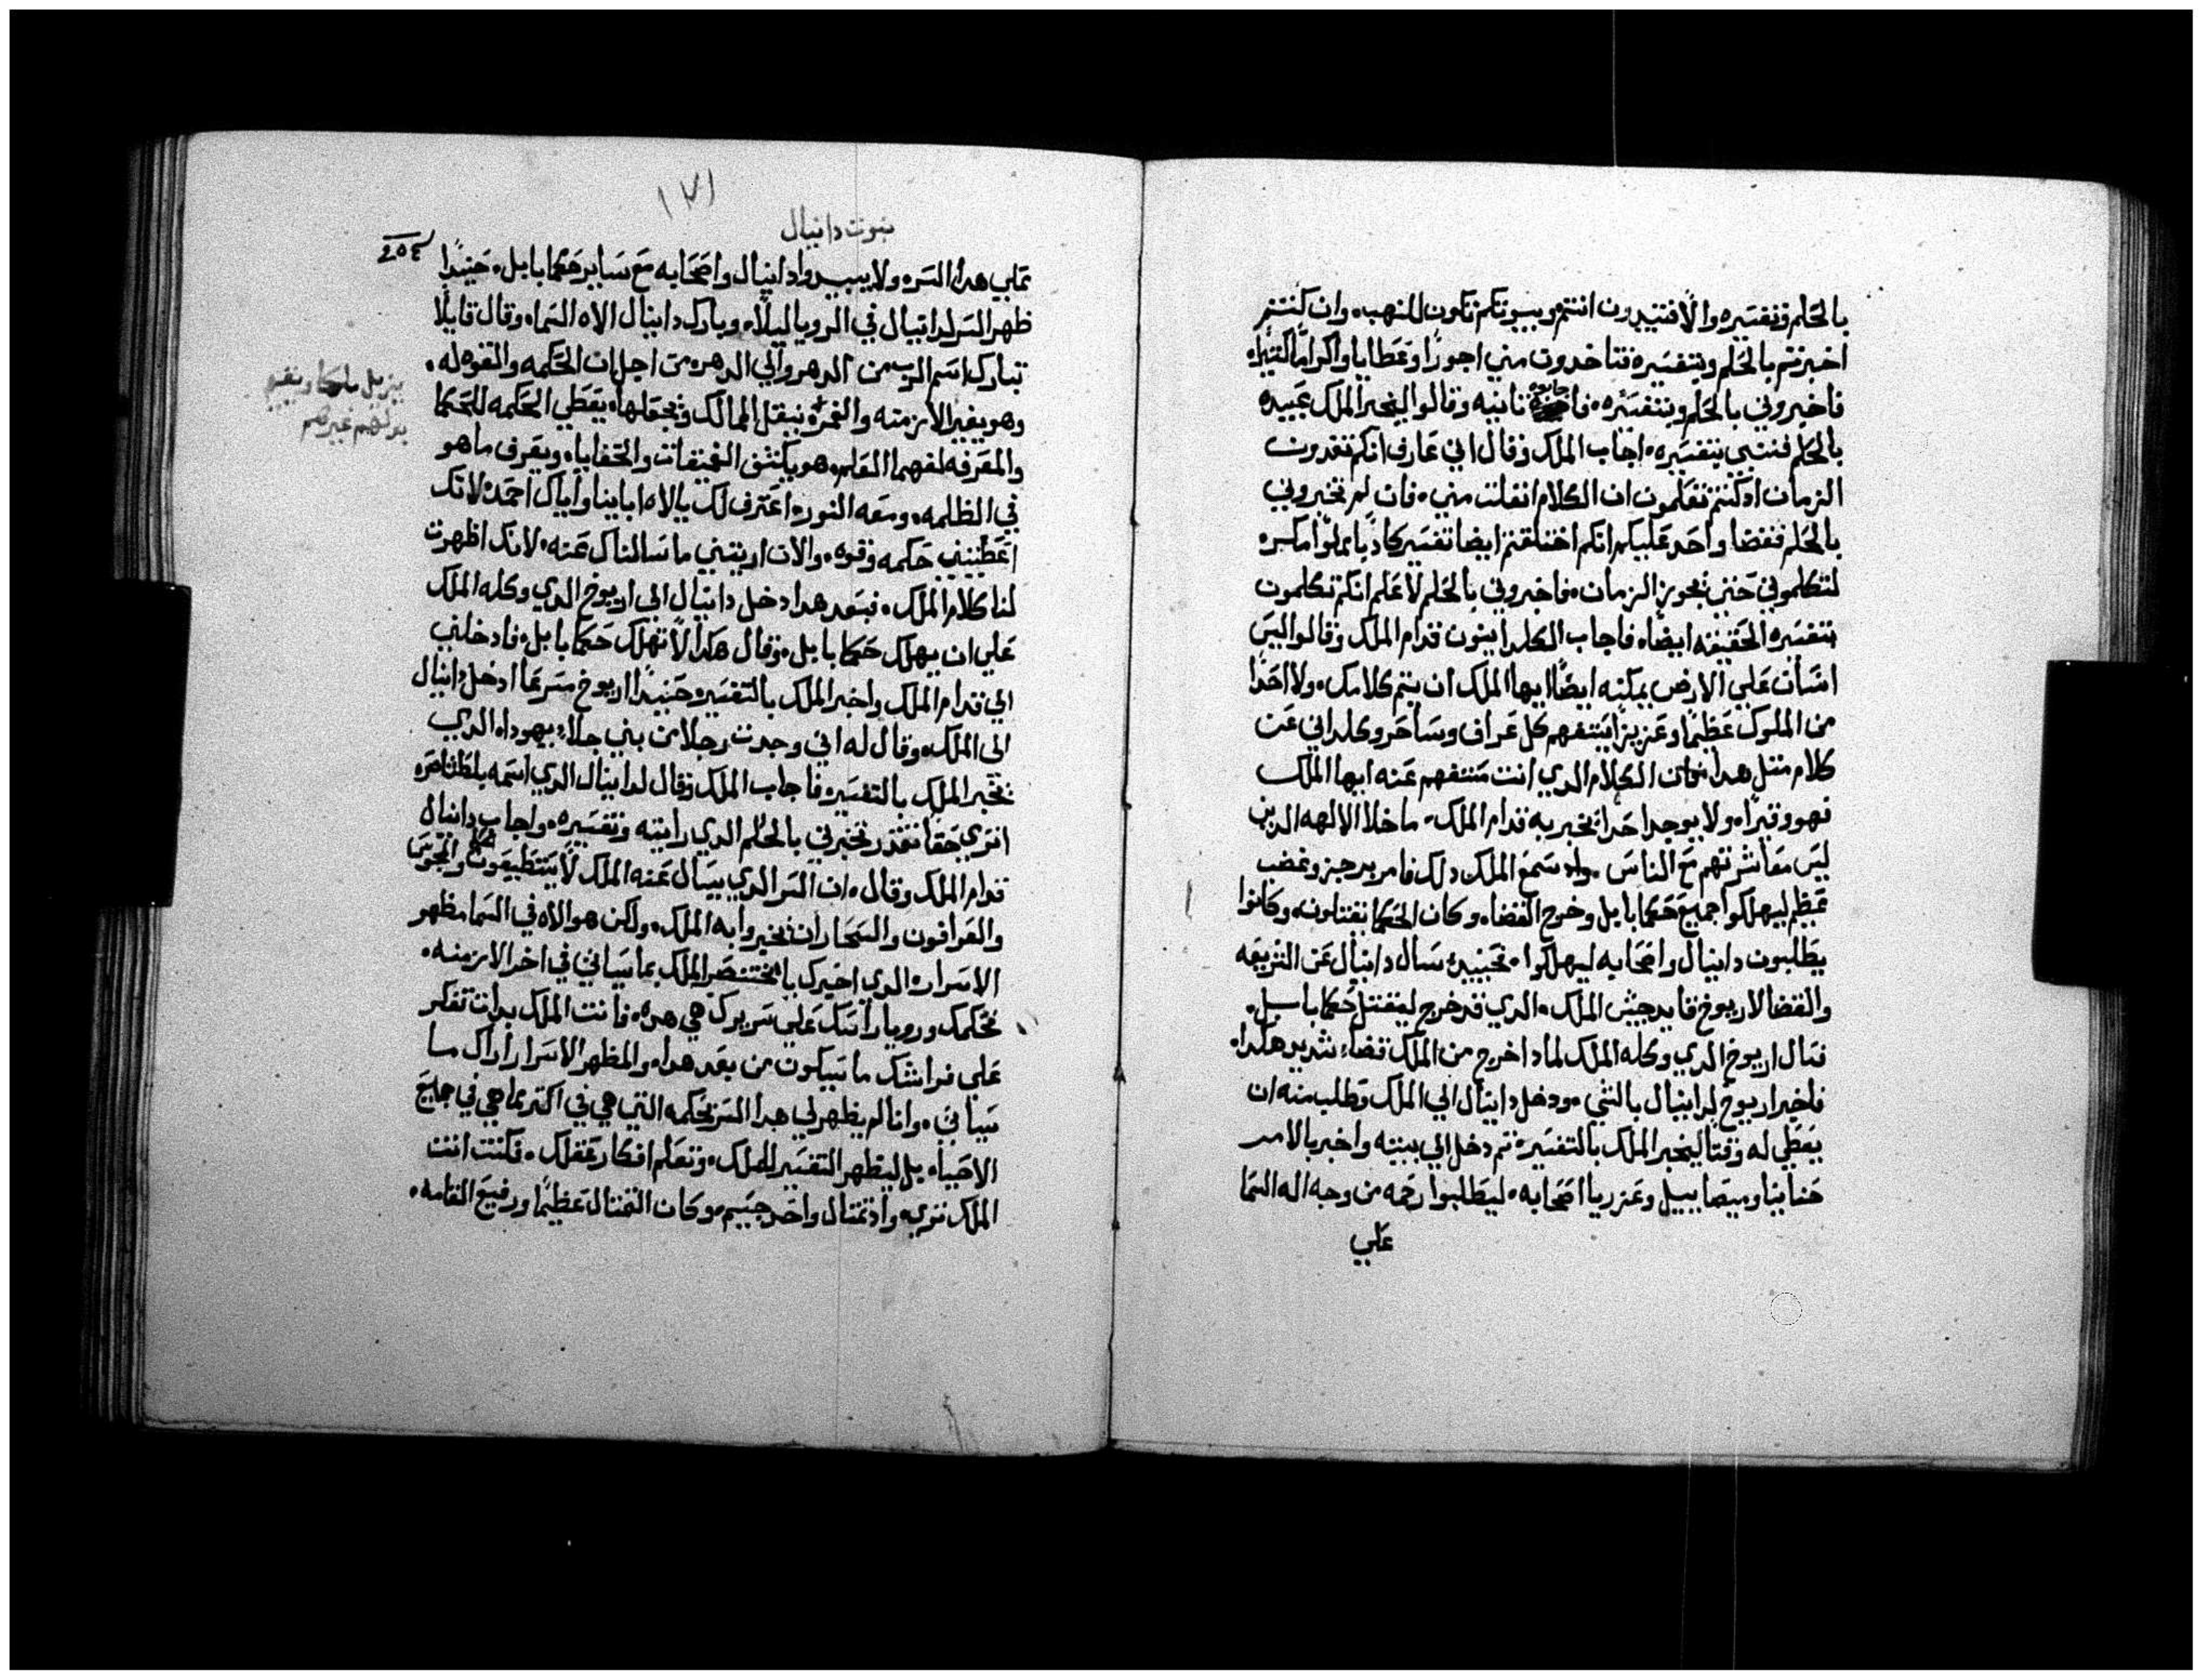 بالحلم وتفسيره والا فتبيدون انتم وبيوتكم تكون للنهب. وان كنتم
اخبرتم بالحلم وبتفسيره فتاخدون مني اجورًا وعطايا واكرامًا كتيرًا.
فاخبروني بالحلم وبتفسيره. فاجابوه تانيه وقالوا ليخبر الملك عبيده
بالحلم فننبي بتفسيره. اجاب الملك وقال اني عارف انكم تفدون
الزمان اد كنتم تعلمون ان الكلام انفلت مني. فان لم تخبروني
بالحلم فقضا واحد عليكم انكم اختلقتم ايضا تفسير كادبا مملوا مكره
لتكلموني حتى يجوز الزمان. فاخبروني بالحلم لاعلم انكم تكلمون
بتفسيره الحقيقه ايضا. فاجاب الكلدانيون قدام الملك وقالوا ليس
انسان على الارض يمكنه ايضًا ايها الملك ان يتم كلامك. ولا احدًا
من الملوك عظيمًا وعزيزًا يستفهم كل عراف وساحر وكلداني عن
كلام متل هدا الكلام الدي انت مستفهم عنه ايها الملك
فهو وقيرًا. ولا يوجد احدا يخبر به قدام الملك. ما خلا الالهه الدين
ليس معاشرتهم مع الناس. واد سمع الملك دلك فامر برجز وغضب
عظيم ليهلكوا جميع حكما بابل وخرج القضا. وكان الحكما يقتلون. وكانوا
يطلبون دانيال واصحابه ليهلكوا. فحينيد سال دانيال عن الشريعه
والقضا لاريوخ قايد جيش الملك. الدي قد خرج ليقتل حكما بابل.
فسال اريوخ الدي وكله الملك لمادا خرج من الملك قضاء شديد هكدا.
فاخبر اريوخ لدانيال بالشي. ودخل دانيال الي الملك وطلب منه ان
يعطي له وقتًا ليخبر الملك بالتفسيره تم دخل الي بيته واخبر بالامر
حنانيا وميصاييل وعزريا اصحابه. ليطلبوا رحمه من وجه اله السما
علي
١٧١
نبوت دانيال
٢٥٤
علي هدا السره ولا يبيدوا دانيال واصحابه مع ساير حكما بابل. حينيدًا
ظهر السر لدانيال في الرويا ليلًا. وبارك دانيال الاه السما. وقال قايلًا
تبارك اسم الرب من الدهر والي الدهر. من اجل ان الحكمه والقوه له.
وهو يغير الازمنه والقمره ينقل الممالك ويجعلها. يعطي الحكمه للحكما
والمعرفه لفهما العلم. هو يكشف العميقات والخفايا. ويعرف ما هو
في الظلمه. ومعه النوره اعترف لك يا الاه ابايينا واياك احمده لانك
اعطيتني حكمه وقوه. والان اريتني ما سالناك عنه. لانك اظهرت
لنا كلام الملك. فبعد هدا دخل دانيال الي اريوخ الدي وكله الملك
علي ان يهلك حكما بابل. وقال هكدا لا تهلك حكما بابل. فادخلني
الي قدام الملك واخبر الملك بالتفسيره حينيدًا اريوخ مسرعًا ادخل دانيال
الي الملك. وقال له اني وجدت رجلا من بني جلاء يهودا. الدي
يخبر الملك بالتفسيره فاجاب الملك وقال لدانيال الدي اسمه بلطشاصره
اتري حقا تقدر تخبرني بالحلم الدي رايته وتفسيره. واجاب دانيال
قدام الملك وقال. ان السر الدي يسال عنه الملك لا يستطيعون والمجوس
والعرافون والسحار ان يخبروا به الملك. ولكن هو الاه في السما مظهر
الاسراره الدي اخبرك يا بختنصر الملك بما سياتي في اخر الازمنه.
فحلمك ورويا راسك علي سريرك هي هده. فانت الملك بدات تفكر
علي فراشك ما سيكون من بعد هدا. والمظهر الاسرار اراك ما
سياتي. وانا لم يظهر لي هدا السر بحكمه التي هي في اكتر مما هي في جميع
الاحياء. بل ليظهر التفسير للملك. وتعلم افكار عقلك. فكنت انت
الملك تري. واد تمتال واحد جسيم. وكان التمتال عظيمًا ورفيع القامه.